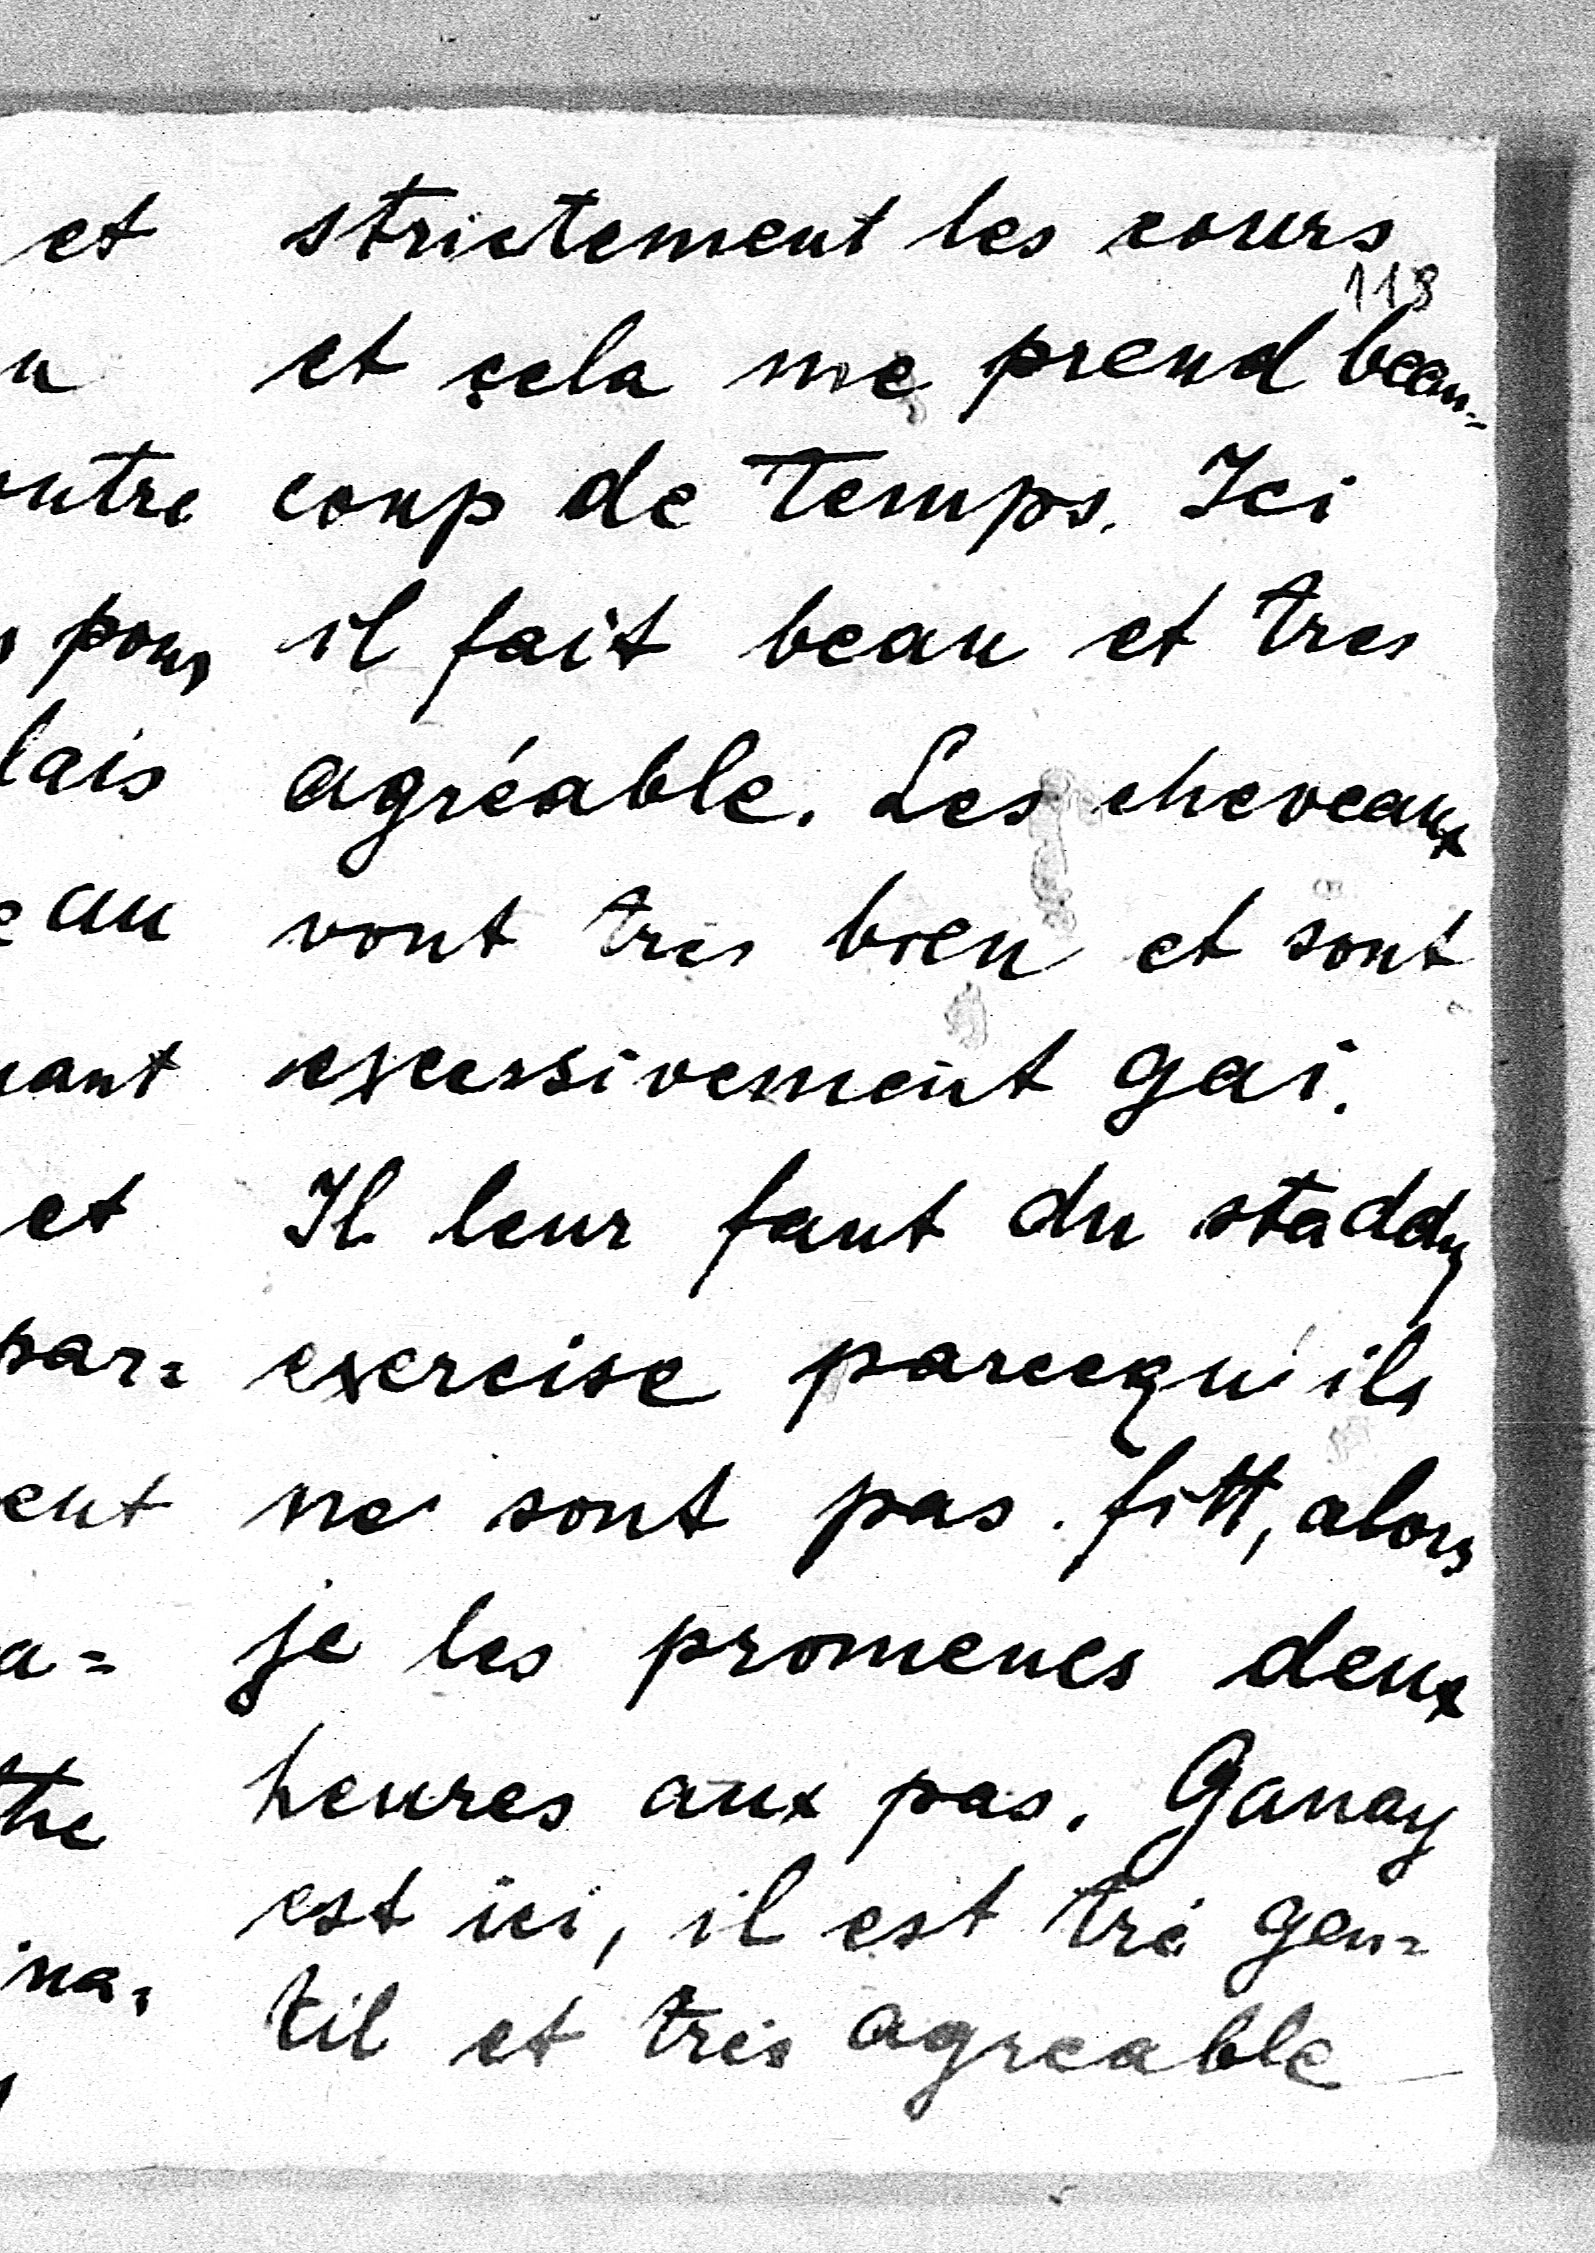 strictement les cours
118
et çela me prend beau-
coup de temps. Ici
il fait beau et tres
agréable. Les cheveaux
vont tres bien et sont
excessivement gai.
Il leur faut du staddy
exercise parcequ'ils
ne sont pas fitt, alors
je les promenes deux
heures aux pas. Ganay
est ici, il est tré gen=
til et très agreable
et
n
ntre
pour
lais
eau
nant
et
par=
ent
a=
the
ina=